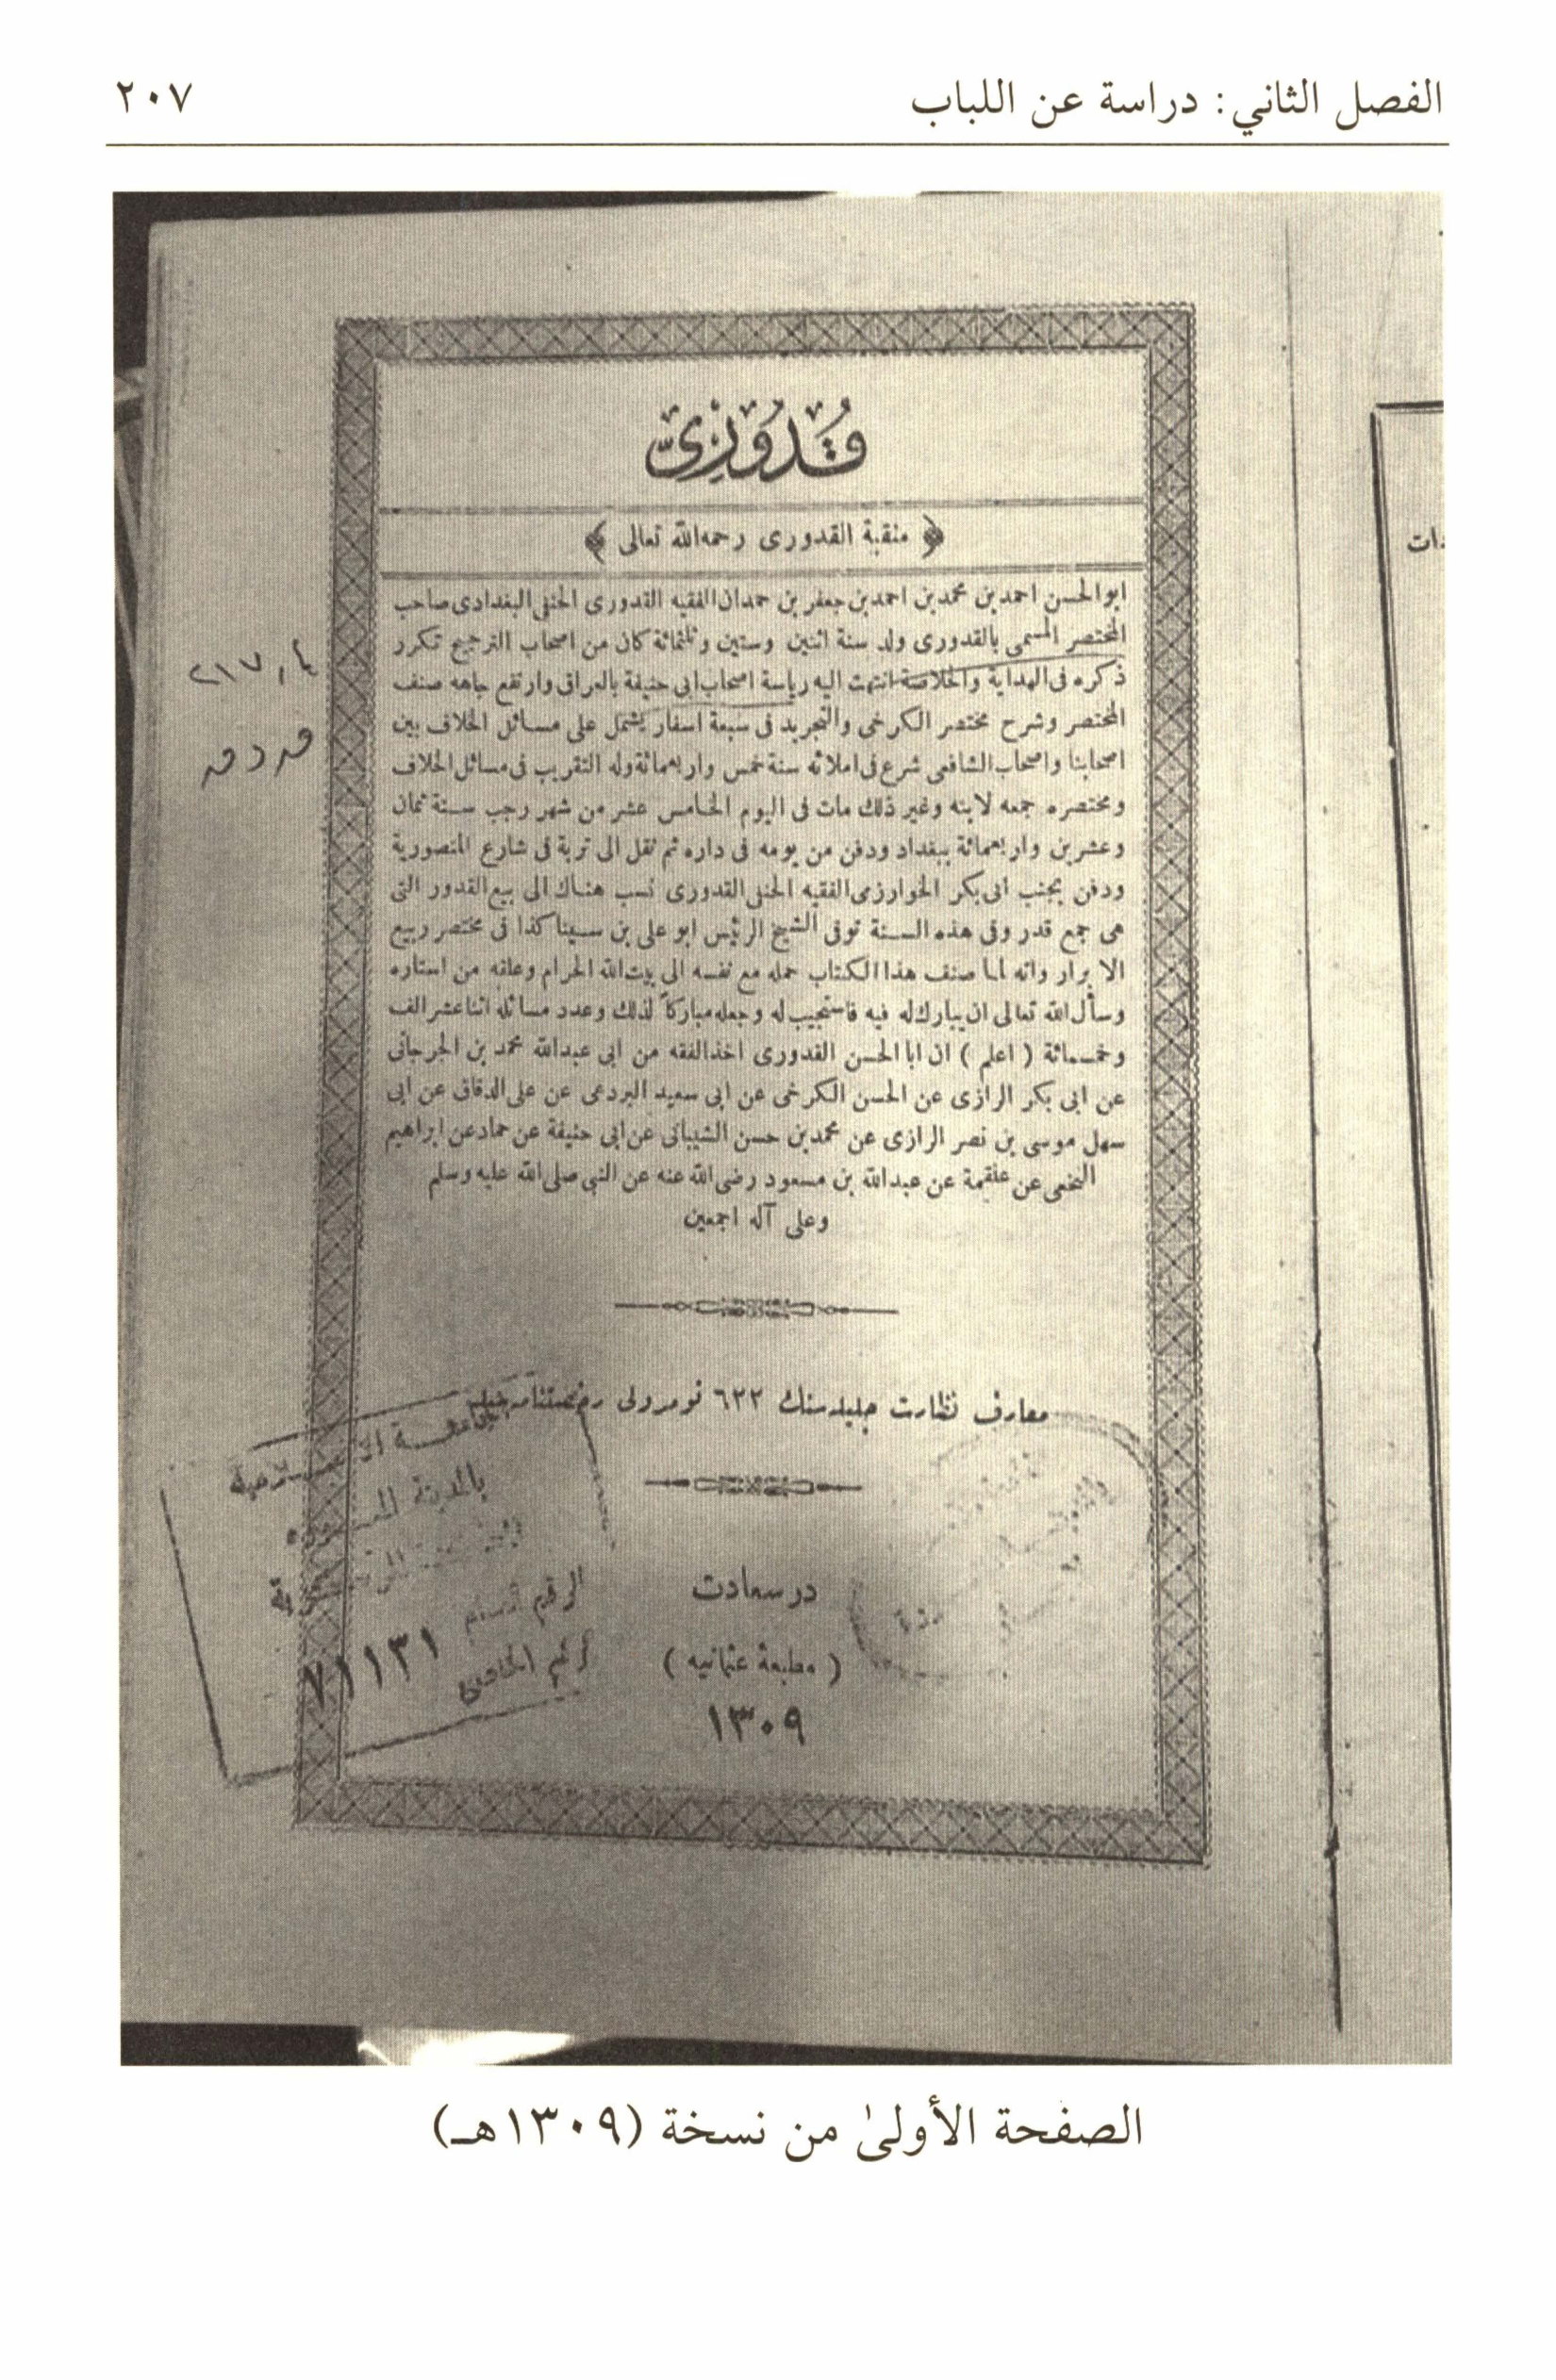 الفصل الثاني: دراسة عن اللباب
٢٠٧
قُدُورِي
﴿ منقبة القدورى رحمه الله تعالى ﴾
ابو الحسن احمد بن محمد بن احمد بن جعفر بن حمدان الفقيه القدورى الحنفى البغدادى صاحب
المختصر المسمى بالقدورى ولد سنة اثنين وستين وثلثمائة كان من اصحاب الترجيح تكرر
ذكره فى الهداية والخلاصة انتهت اليه رياسة اصحاب ابى حنيفة بالعراق وارتفع جاهه صنف
المختصر وشرح مختصر الكرخى والتجريد فى سبعة اسفار يشتمل على مسائل الخلاف بين
اصحابنا واصحاب الشافعى شرع فى املائه سنة خمس واربعمائة وله التقريب فى مسائل الخلاف
ومختصره جمعه لابنه وغير ذلك مات فى اليوم الخامس عشر من شهر رجب سنة ثمان
وعشرين واربعمائة ببغداد ودفن من يومه فى داره ثم نقل الى تربة فى شارع المنصورية
ودفن بجنب ابى بكر الخوارزمى الفقيه الحنفى القدورى نسب هناك الى بيع القدور التى
هى جمع قدر وفى هذه السنة توفى الشيخ الرئيس ابو على بن سينا كذا فى مختصر ربيع
الابرار وانه لما صنف هذا الكتاب حمله مع نفسه الى بيت الله الحرام وعلقه من استاره
وسأل الله تعالى ان يبارك له فيه فاستجيب له وجعله مباركاً لذلك وعدد مسائله اثنا عشر الف
وخمسمائة ( اعلم ) ان ابا الحسن القدورى اخذ الفقه من ابى عبدالله محمد بن الجرجانى
عن ابى بكر الرازى عن الحسن الكرخى عن ابى سعيد البردعى عن على الدقاق عن ابى
سهل موسى بن نصر الرازى عن محمد بن حسن الشيبانى عن ابى حنيفة عن حماد عن ابراهيم
النخعى عن علقمة عن عبدالله بن مسعود رضى الله عنه عن النبى صلى الله عليه وسلم
وعلى آله اجمعين
٢١٧,٤
معارف نظارت جليله سنك ٦٢٢ نومرولى رخصتنامه
بالمدينة
الرقم
٧١١٣١
در سعادت
( مطبعة عثمانيه )
١٣٠٩
دات
الصفحة الأولىٰ من نسخة (١٣٠٩هـ)